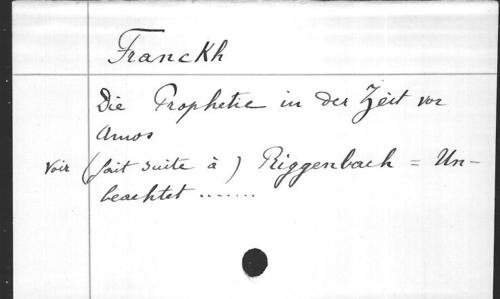 Franckh
Die Prophetie in der Zeit vor
Amos
Voir (fait suite à) Riggenbach = Un-
beachtet .......